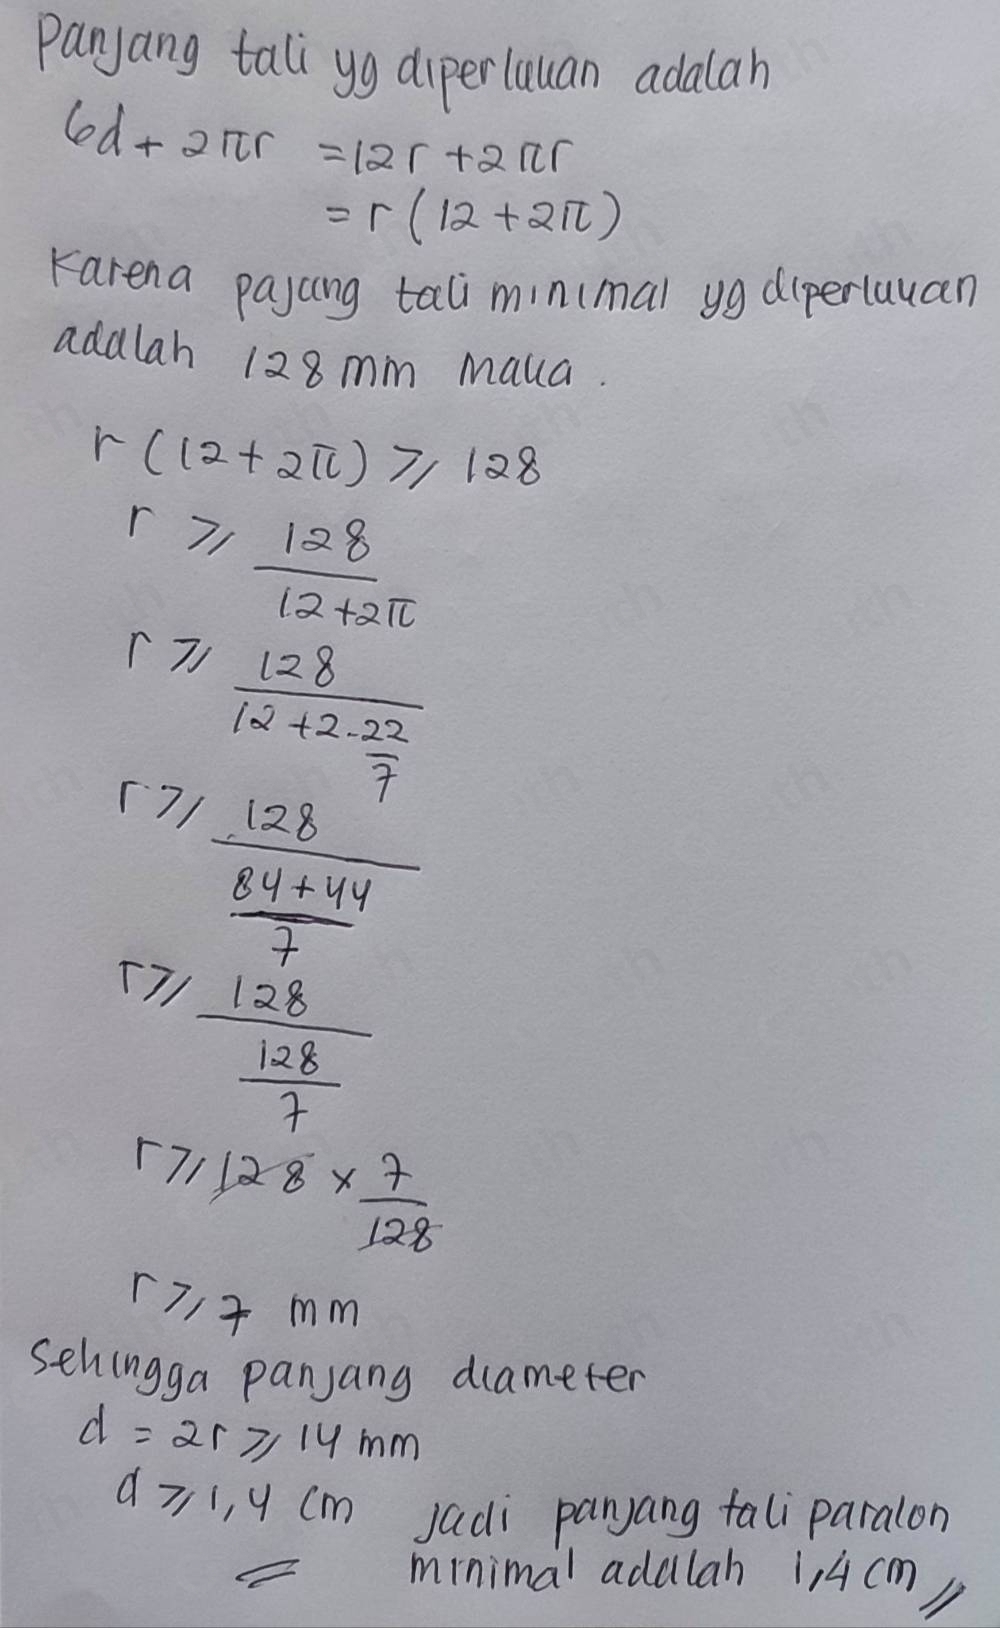 Panjang tali yg diperlukan adalah
6d + 2πr = 12r + 2πr
= r (12 + 2π)
Karena pajang tali minimal yg diperlukan
adalah 128 mm maka.
r (12 + 2π) ≥ 128
r ≥ 128/(12 + 2π)
r ≥ 128/(12 + 2 . 22/7)
r ≥ 128/((84 + 44)/7)
r ≥ 128/(128/7)
r ≥ 128 × 7/128
r ≥ 7 mm
Sehingga panjang diameter
d = 2r ≥ 14 mm
d ≥ 1,4 cm jadi panjang tali paralon
minimal adalah 1,4 cm //